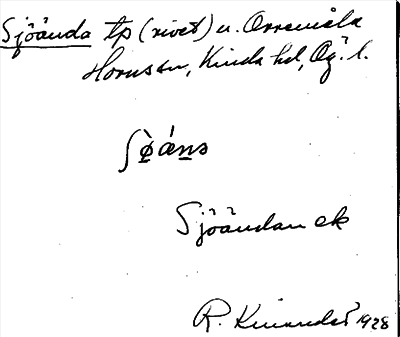 Sjöända tp (rivet) u. Orremåla
Hornsm, Kinda hd, Ög. l.
ʃø̀áns
Sjöändan ek
R. Kinander 1928